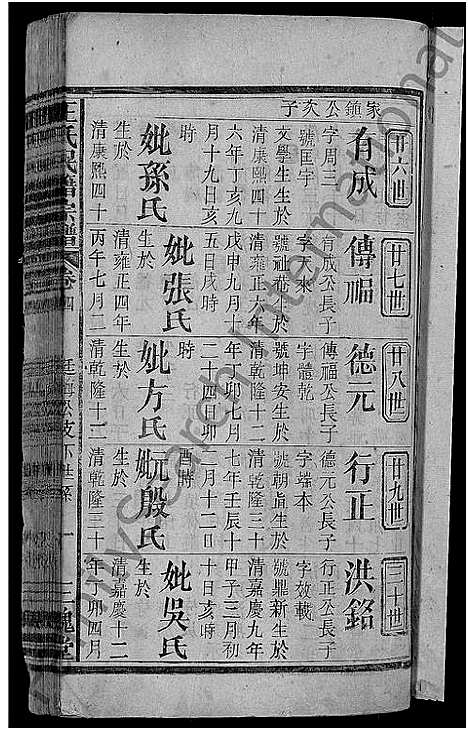 家鎚公次子
廿六世
有成
字周三
號匡宇
文學生生於
清康熙四十
六年丁亥九
月十九日亥
時
妣孫氏
生於
清康熙四十
廿七世
傳福
有成公長子
字天來
清雍正六年
戊申九月十
五日戌時
妣張氏
生於
清雍正四年
丙午七月二
廿八世
德元
傳福公長子
字體乾
號坤安生於
清乾隆十二
年丁卯七月
二十四日卯
時
妣方氏
生於
清乾隆十二
廿九世
行正
德元公長子
字端本
號朝貞生於
清乾隆三十
七年壬辰十
二月十二日
酉時
妣殷氏
生於
清乾隆三十
三十世
洪銘
行正公長子
字效載
號鼎新生於
清嘉慶九年
甲子三月初
十日亥時
妣吳氏
生於
清嘉慶十二
年丁卯四月
王氏 宗譜
卷四
一
三槐堂